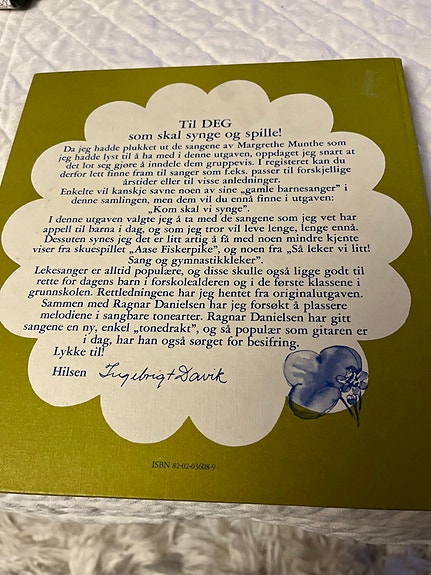 Til DEG
som skal synge og spille!
Da jeg hadde plukket ut de sangene av Margrethe Munthe som
jeg hadde lyst til å ha med i denne utgaven, oppdaget jeg snart at
det lot seg gjøre å inndele dem gruppevis. I registeret kan du
derfor lett finne fram til sanger som f.eks. passer til forskjellige
årstider eller til visse anledninger.
Enkelte vil kanskje savne noen av sine „gamle barnesanger" i
denne samlingen, men dem vil du ennå finne i utgaven:
„Kom skal vi synge".
I denne utgaven valgte jeg å ta med de sangene som jeg vet har
appell til barna i dag, og som jeg tror vil leve lenge, lenge ennå.
Dessuten synes jeg det er litt artig å få med noen mindre kjente
viser fra skuespillet „Aase Fiskerpike", og noen fra „Så leker vi litt!
Sang og gymnastikkleker".
Lekesanger er alltid populære, og disse skulle også ligge godt til
rette for dagens barn i forskolealderen og i de første klassene i
grunnskolen. Rettledningene har jeg hentet fra originalutgaven.
Sammen med Ragnar Danielsen har jeg forsøkt å plassere
melodiene i sangbare tonearter. Ragnar Danielsen har gitt
sangene en ny, enkel „tonedrakt", og så populær som gitaren er
i dag, har han også sørget for besifring.
Lykke til!
Hilsen Ingebrigt Davik
ISBN 82-02-03608-9